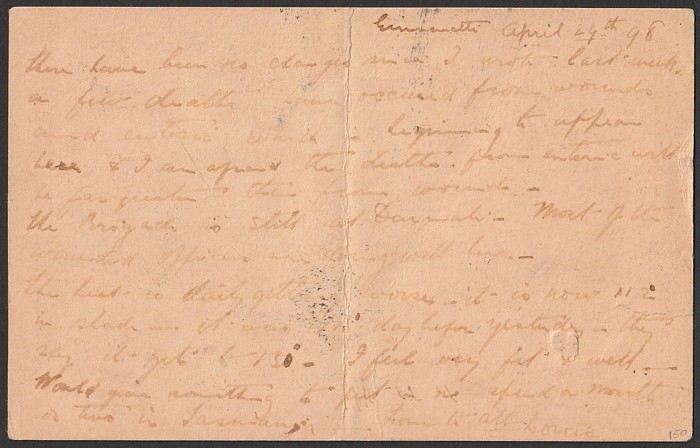 April 29th 98
there have been no changes since I wrote last week.
a few deaths have occured from wounds
and enteric which is beginning to appear
here & I am afraid the deaths from enteric will
be far greater than from wounds -
the Brigade is still at Darmali - Most of the
wounded officers are doing well here -
the heat is daily getting worse - it is now 112
in shade - it was day before yesterday - they
say it gets to 130 - I feel very fit & well -
Would give something to put in no spend a month
or two in Tasmania - love to all
150